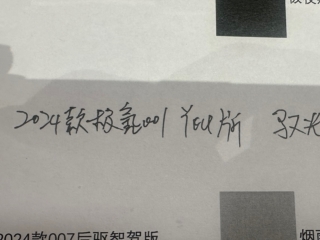 2024款极氪001 YOU版 驭光
2024款007后驱智驾版